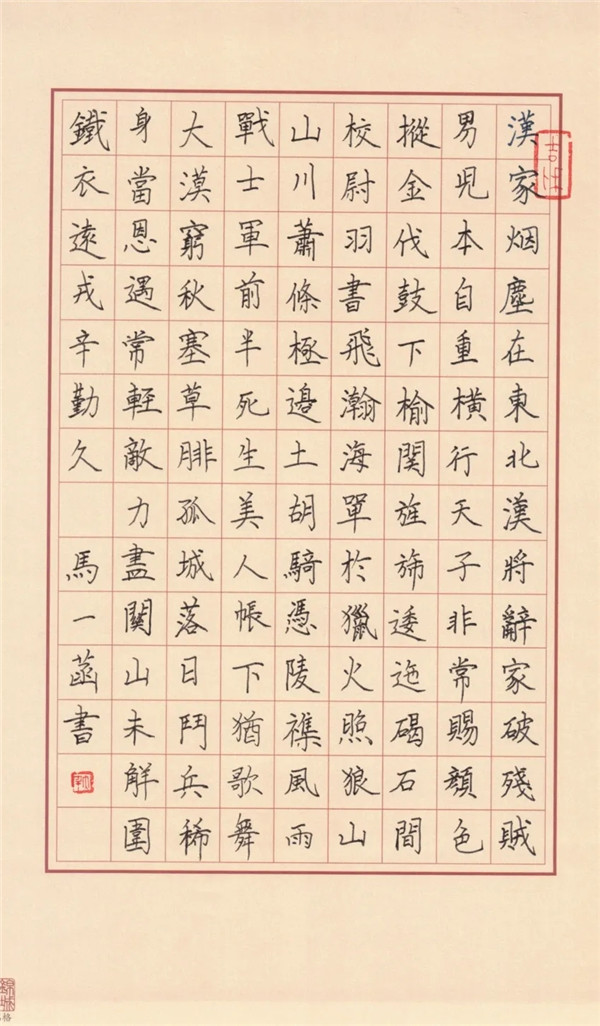 漢家烟塵在東北漢將辭家破殘賊
男兒本自重橫行天子非常賜顏色
摐金伐鼓下榆関旌旆逶迤碣石間
校尉羽書飛瀚海單於獵火照狼山
山川蕭條極邊土胡騎憑陵襍風雨
戰士軍前半死生美人帳下猶歌舞
大漠窮秋塞草腓孤城落日鬥兵稀
身當恩遇常輕敵力盡関山未解圍
鐵衣遠戎辛勤久 馬一菡書